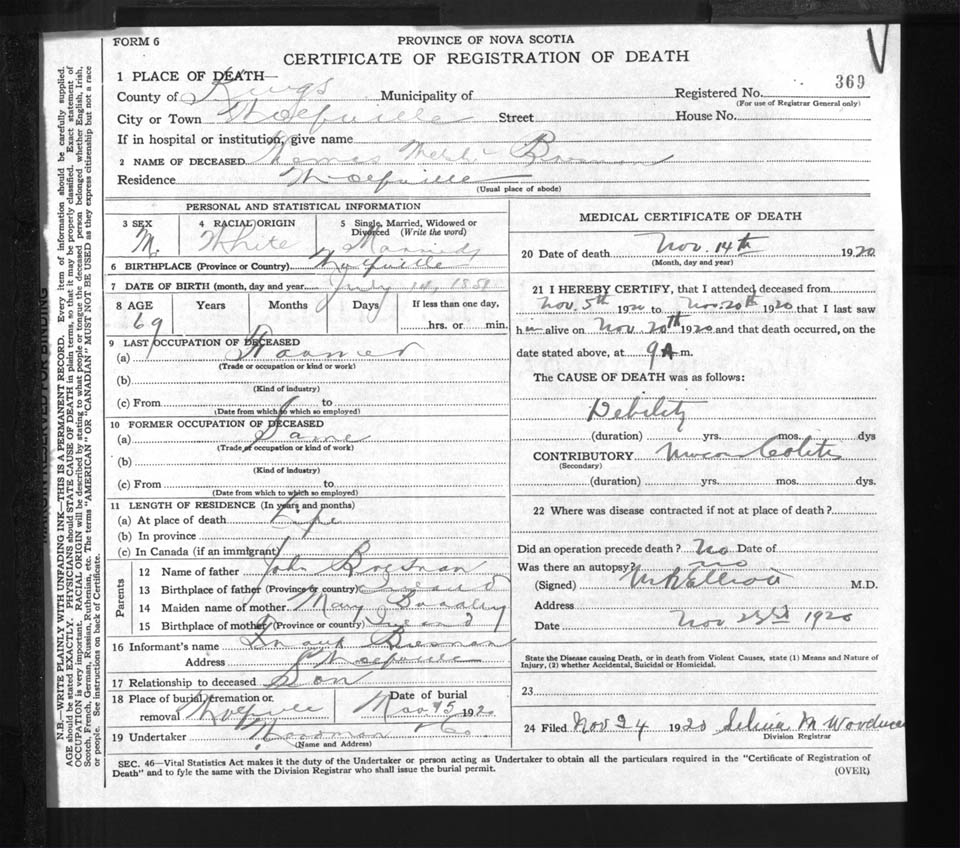 FORM 6
PROVINCE OF NOVA SCOTIA
CERTIFICATE OF REGISTRATION OF DEATH
369
1 PLACE OF DEATH—
County of Kings Municipality of
Registered No.
(For use of Registrar General only)
City or Town Wolfville Street House No.
If in hospital or institution, give name
2 NAME OF DECEASED Thomas
Residence Wolfville
(Usual place of abode)
PERSONAL AND STATISTICAL INFORMATION
3 SEX 4 RACIAL ORIGIN 5 Single, Married, Widowed or Divorced (Write the word)
M. White Married
6 BIRTHPLACE (Province or Country) Wolfville
7 DATE OF BIRTH (month, day and year) July 14, 1851
8 AGE Years Months Days If less than one day,
69 hrs. or min.
9 LAST OCCUPATION OF DECEASED
(a) Farmer
(Trade or occupation or kind or work)
(b)
(Kind of industry)
(c) From to
(Date from which to which so employed)
10 FORMER OCCUPATION OF DECEASED
(a) Same
(Trade or occupation or kind or work)
(b)
(Kind of industry)
(c) From to
(Date from which to which so employed)
11 LENGTH OF RESIDENCE (In years and months)
(a) At place of death Life
(b) In province
(c) In Canada (if an immigrant)
Parents
12 Name of father John
13 Birthplace of father (Province or country) Ireland
14 Maiden name of mother Mary
15 Birthplace of mother (Province or country) Ireland
16 Informant's name
Address Wolfville
17 Relationship to deceased Son
18 Place of burial, cremation or removal Wolfville Date of burial Nov 1920
19 Undertaker Woodman & Co
(Name and Address)
MEDICAL CERTIFICATE OF DEATH
20 Date of death Nov. 14th 1920
(Month, day and year)
21 I HEREBY CERTIFY, that I attended deceased from
Nov. 5th 1920 to Nov. 20th 1920 that I last saw
him alive on Nov. 20th 1920 and that death occurred, on the
date stated above, at 9 A.m.
The CAUSE OF DEATH was as follows:
Debility
(duration) yrs. mos. dys
CONTRIBUTORY Mucous Colitis
(Secondary)
(duration) yrs. mos. dys.
22 Where was disease contracted if not at place of death?
Did an operation precede death? No Date of
Was there an autopsy? no
(Signed) M.D.
Address
Date Nov 23rd 1920
State the Disease causing Death, or in death from Violent Causes, state (1) Means and Nature of
Injury, (2) whether Accidental, Suicidal or Homicidal.
23
24 Filed Nov 24 1920
Division Registrar
SEC. 46—Vital Statistics Act makes it the duty of the Undertaker or person acting as Undertaker to obtain all the particulars required in the "Certificate of Registration of
Death" and to fyle the same with the Division Registrar who shall issue the burial permit.
(OVER)
MARGIN RESERVED FOR BINDING
N.B.—WRITE PLAINLY WITH UNFADING INK—THIS IS A PERMANENT RECORD. Every item of information should be carefully supplied.
AGE should be stated EXACTLY. PHYSICIANS should STATE CAUSE OF DEATH in plain terms, so that it may be properly classified. Exact statement of
OCCUPATION is very important. RACIAL ORIGIN will be described by stating to what people or tongue the deceased person belonged whether English, Irish,
Scotch, French, German, Russian, Ruthenian, etc. The terms "AMERICAN" or "CANADIAN" MUST NOT BE USED as they express citizenship but not a race
or people. See instructions on back of Certificate.